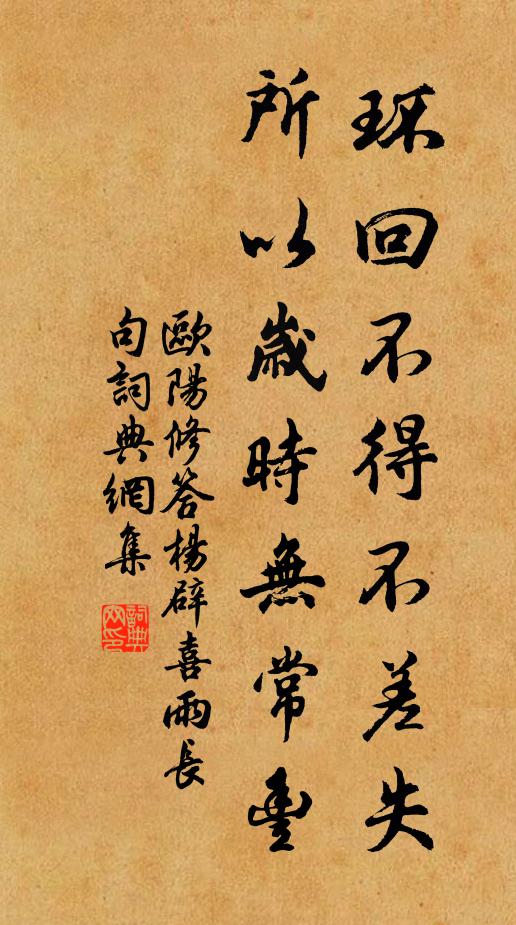 环回不得不差失
所以歲時無常豐
歐陽修答楊辟喜雨長
句詞典網集
詞典
网印